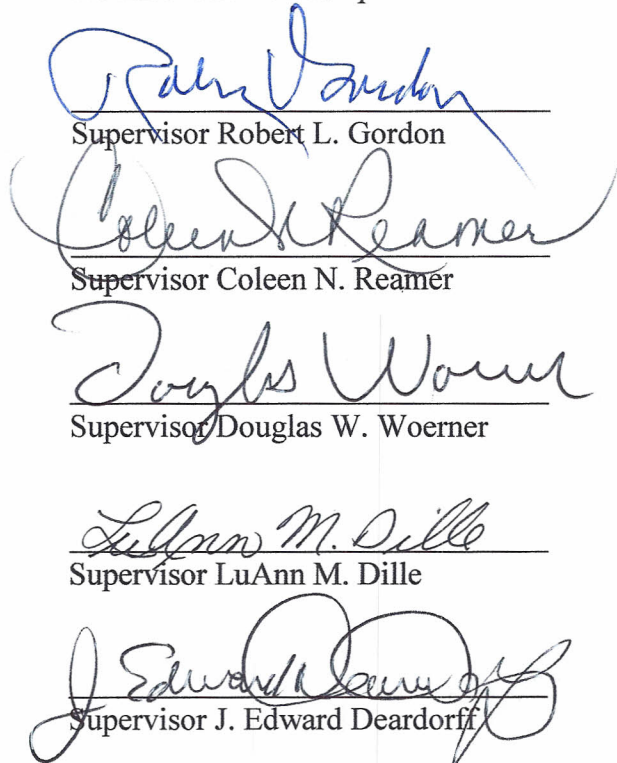 Robert Gordon
Supervisor Robert L. Gordon
Coleen N Reamer
Supervisor Coleen N. Reamer
Douglas Woerner
Supervisor Douglas W. Woerner
LuAnn M. Dille
Supervisor LuAnn M. Dille
J Edward Deardorff
Supervisor J. Edward Deardorff